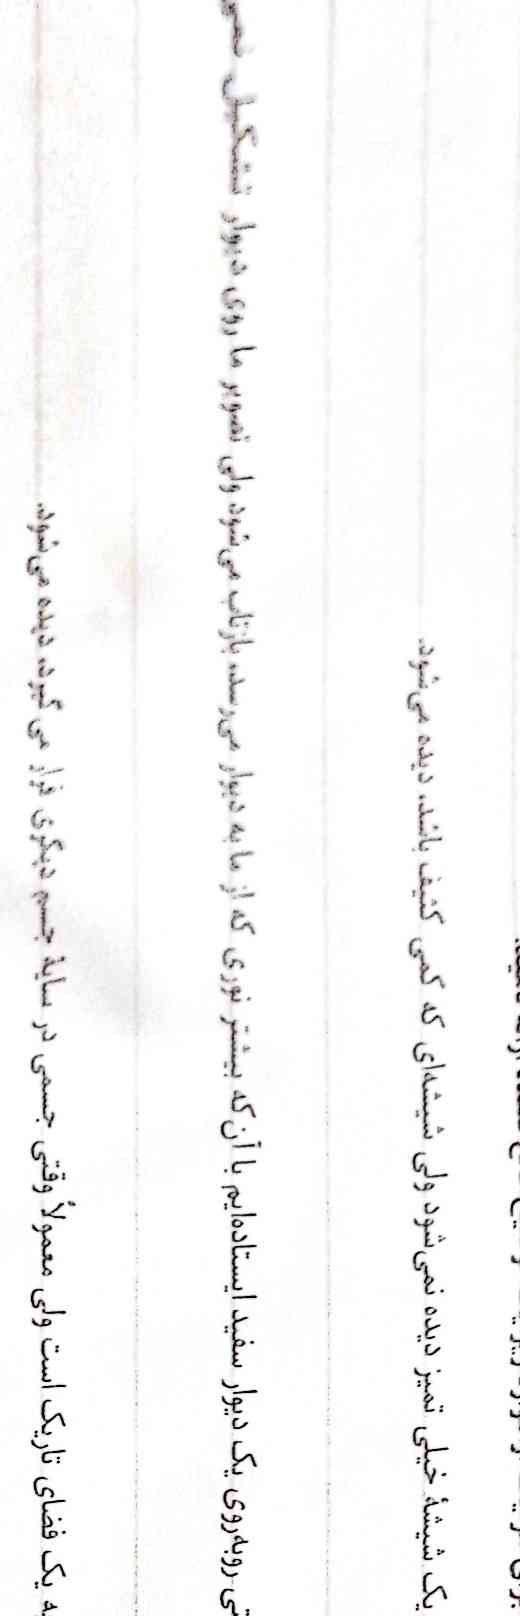 یک شیشهٔ خیلی تمیز دیده نمی‌شود ولی شیشه‌ای که کمی کثیف باشد، دیده می‌شود.
روبه‌روی یک دیوار سفید ایستاده‌ایم با آن‌که بیشتر نوری که از ما به دیوار می‌رسد، بازتاب می‌شود ولی تصویر ما روی دیوار تشکیل
یک فضای تاریک است ولی معمولاً وقتی جسمی در سایهٔ جسم دیگری قرار می‌گیرد، دیده می‌شود.